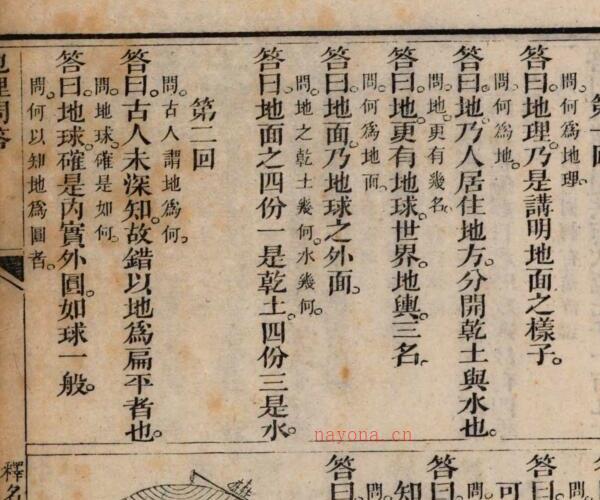 第一回
問。何為地理。
答曰。地理。乃是講明地面之樣子。
問。何為地。
答曰。地。乃人居住地方。分開乾土與水也。
問。地更有幾名。
答曰。地。更有地球。世界。地輿。三名。
問。何為地面。
答曰。地面。乃地球之外面。
問。地之乾土幾何。水幾何。
答曰。地面之四份一是乾土。四份三是水。
第二回
問。古人謂地為何。
答曰。古人未深知。故錯以地為扁平者也。
問。地球確是如何。
答曰。地球確是內實外圓。如球一般。
問。何以知地為圓者。
地理問答
可
問。
答曰
知
問。
答曰
問。
答曰
釋名
nayona.cn